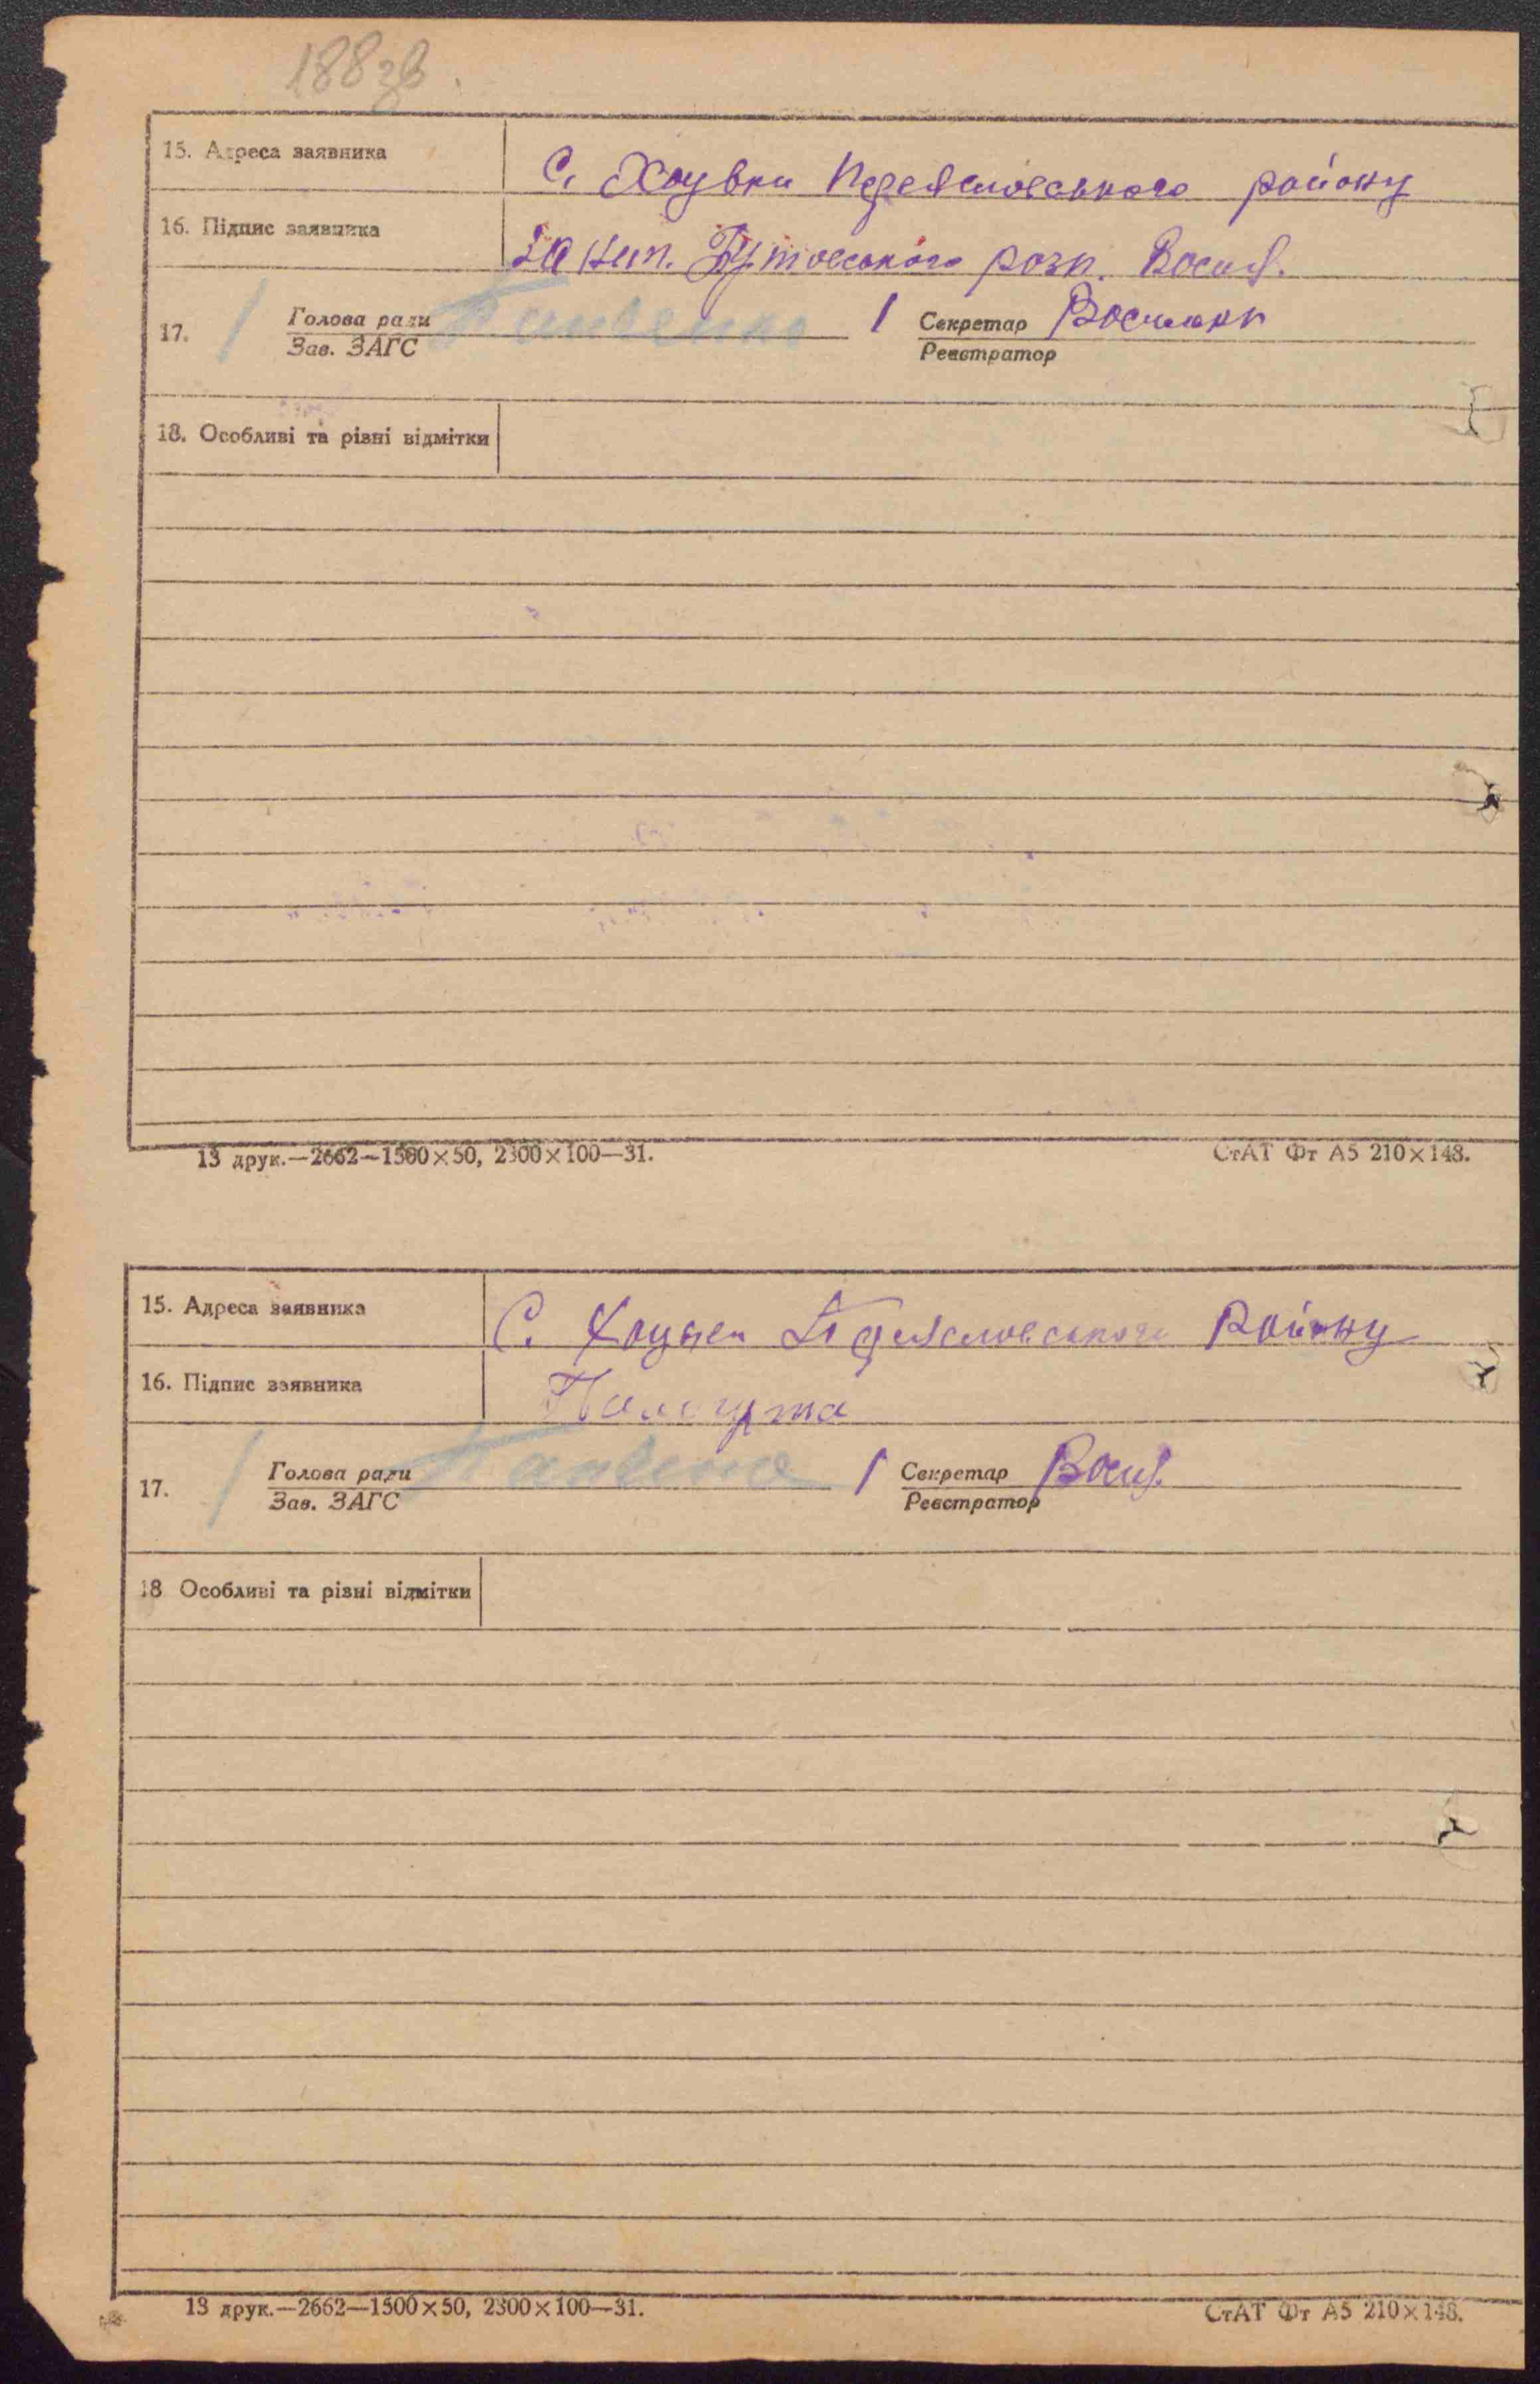 188зв.
15. Адреса заявника С. Хоцьки Переяслоеського району
16. Підпис заявника За неп. розп. Восил.
17. Голова ради Секретар Восиленк
Зав. ЗАГС Реєстратор
18. Особливі та різні відмітки
13 друк.—2662—1500×50, 2300×100—31. СтАТ Фт А5 210×148.
15. Адреса заявника С. Хоцьки Переяслоеського Району
16. Підпис заявника
17. Голова ради Секретар Восил.
Зав. ЗАГС Реєстратор
18 Особливі та різні відмітки
13 друк.—2662—1500×50, 2300×100—31. СтАТ Фт А5 210×148.